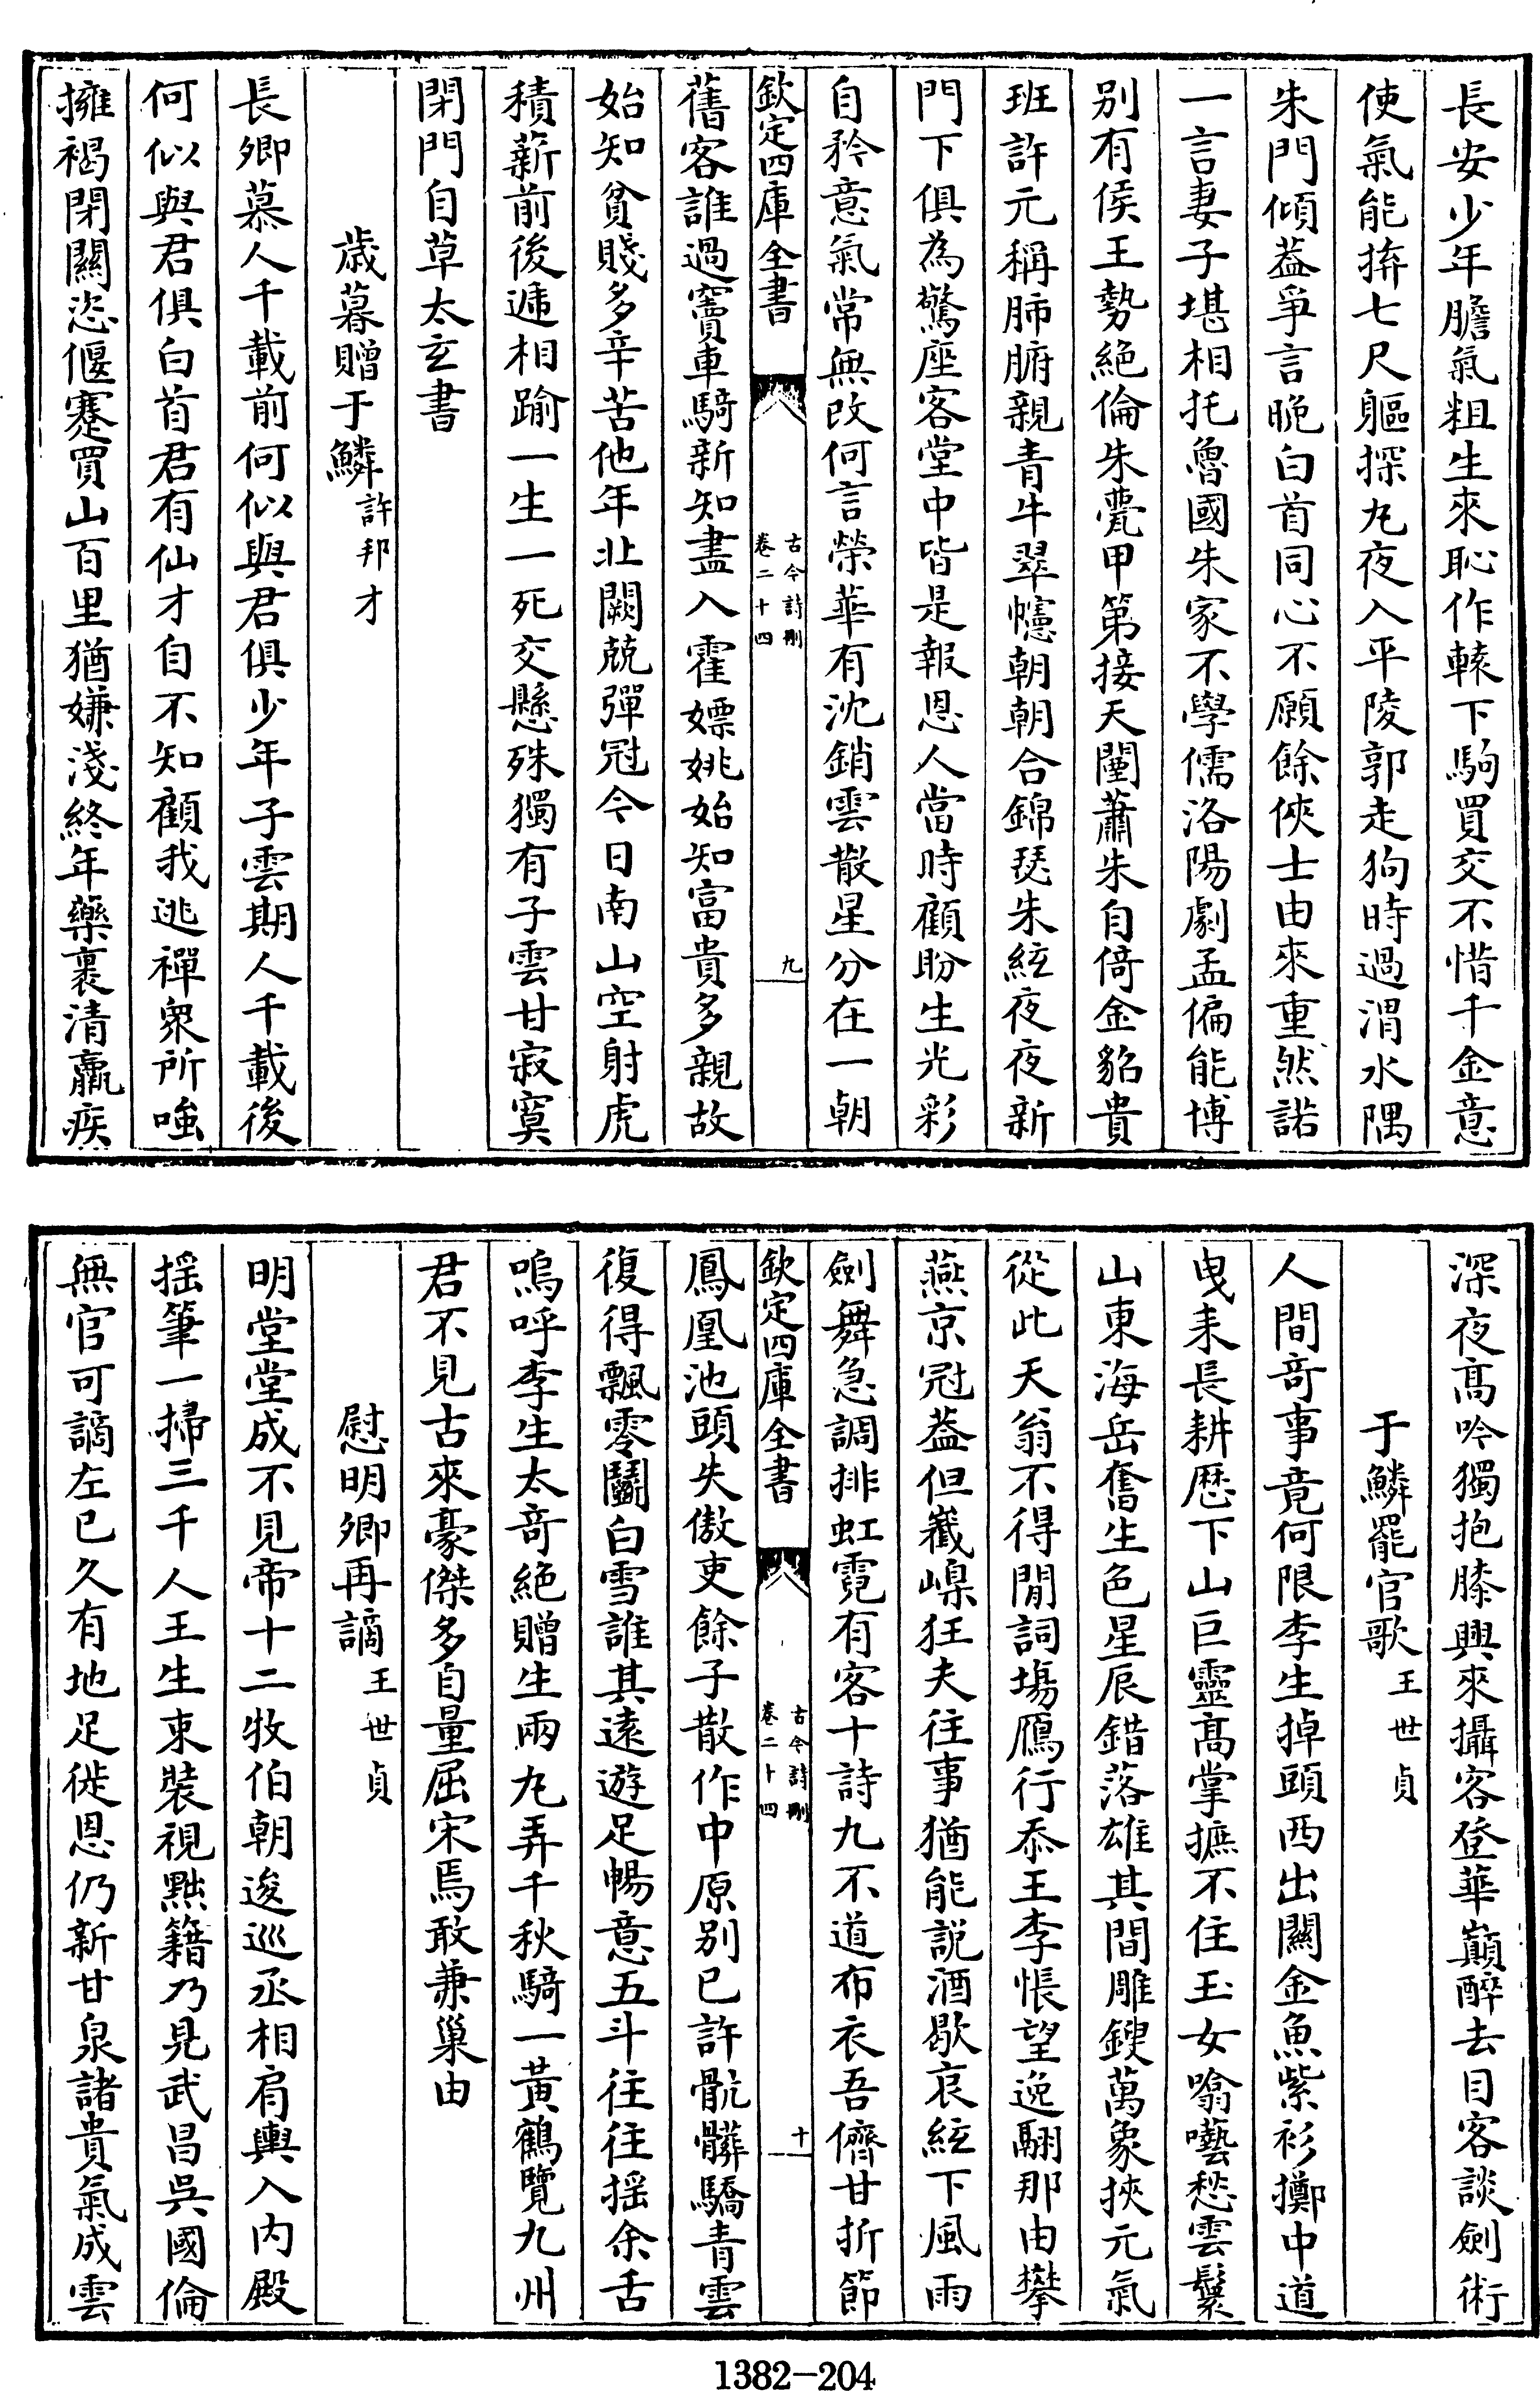 長安少年膽氣粗生來恥作轅下駒買交不惜千金意
使氣能捹七尺軀探丸夜入平陵郭走狗時過渭水隅
朱門傾葢爭言晚白首同心不願餘俠士由來重然諾
一言妻子堪相托魯國朱家不學儒洛陽劇孟偏能博
别有侯王勢絶倫朱甍甲第接天闉蕭朱自倚金貂貴
班許元稱肺腑親青牛翠幰朝朝合錦瑟朱絃夜夜新
門下俱為驚座客堂中皆是報恩人當時顧盼生光彩
自矜意氣常無改何言榮華有沈銷雲散星分在一朝
欽定四庫全書
古今詩刪
卷二十四
九
舊客誰過竇車騎新知盡入霍嫖姚始知富貴多親故
始知貧賤多辛苦他年北闕兢彈冠今日南山空射虎
積薪前後遞相踰一生一死交懸殊獨有子雲甘寂寞
閉門自草太玄書
歲暮贈于鱗許邦才
長卿慕人千載前何似與君俱少年子雲期人千載後
何似與君俱白首君有仙才自不知顧我逃禪衆所嗤
擁褐閉關恣偃蹇買山百里猶嫌淺終年藥裹清羸疾
深夜高吟獨抱膝興來攝客登華巔醉去目客談劍術
于鱗罷官歌王世貞
人間奇事竟何限李生掉頭西出關金魚紫衫擲中道
曳耒長耕歴下山巨靈高掌摭不住玉女噏囈愁雲鬟
山東海岳奮生色星辰錯落雄其間雕鎪萬象挾元氣
從此天翁不得閒詞塲鴈行忝王李悵望逸翮那由攀
燕京冠葢但巀嵲狂夫往事猶能説酒歇哀絃下風雨
劍舞急調排虹霓有客十詩九不道布衣吾儕甘折節
欽定四庫全書
古今詩刪
卷二十四
十
鳳凰池頭失傲吏餘子散作中原别已許骯髒驕青雲
復得飄零鬬白雪誰其遠遊足暢意五斗往往摇余舌
嗚呼李生太奇絶贈生兩丸弄千秋騎一黃鶴覽九州
君不見古來豪傑多自量屈宋焉敢兼巢由
慰明卿再謫王世貞
明堂堂成不見帝十二牧伯朝逡巡丞相肩輿入内殿
摇筆一掃三千人王生束裝視㸃籍乃見武昌吳國倫
無官可謫左已久有地足徙恩仍新甘泉諸貴氣成雲
1382-204